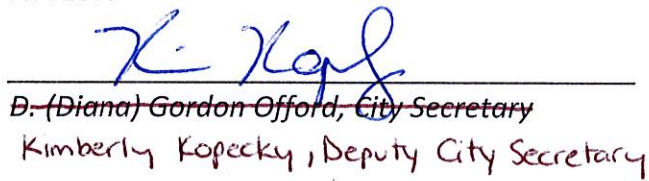 D. (Diana) Gordon Offord, City Secretary
Kimberly Kopecky, Deputy City Secretary